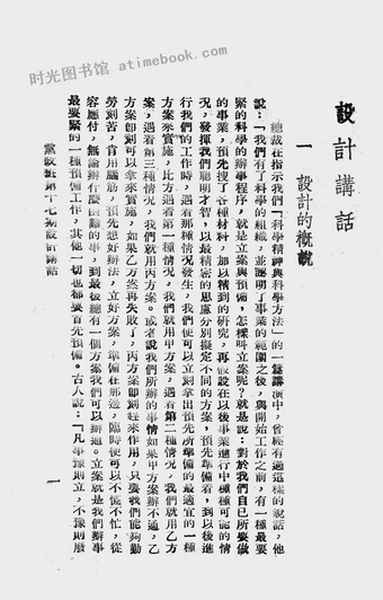 时光图书馆 atimebook.com
設計講話
一 設計的概說
總裁在指示我們「科學精神與科學方法」的一篇講演中，曾經有過這樣的說話，他
說：「我們有了科學的組織，並證明了事業的範圍之後，與開始工作之前，有一種最要
緊的科學的辦事程序，就是立案與預備，怎樣叫立案呢？就是說：對於我們自己所要做
的事業，預先搜了各種材料，加以精到的研究，再假設在以後事業進行中種種可能的情
況，發揮我們聰明才智，以最精密的思慮分別擬定不同的方案，預先準備着，到以後進
行我們的工作時，遇着那種情況發生，我們便可以立刻拿出預先所準備的最適宜的一種
方案來實施，比方遇着第一種情況，我們就用甲方案，遇着第二種情況，我們就用乙方
案，遇着第三種情況，我們就用丙方案。或者說我們所辦的事情如果甲方案辦不通，乙
方案卽刻可以拿來實施，如果乙方案再失敗了，丙方案卽刻趕來作用，只要我們能夠勤
勞刻苦，肯用腦筋，預先想好辦法，立好方案，準備在那邊，臨時便可以不慌不忙，從
容應付，無論辦什麼困難的事，到最後總有一個方案我們可以辦通。立案就是我們辦事
最要緊的一種預備工作，其他一切也都要首先預備。古人說：「凡事豫則立，不豫則廢
黨政班第十七期設計講話
一